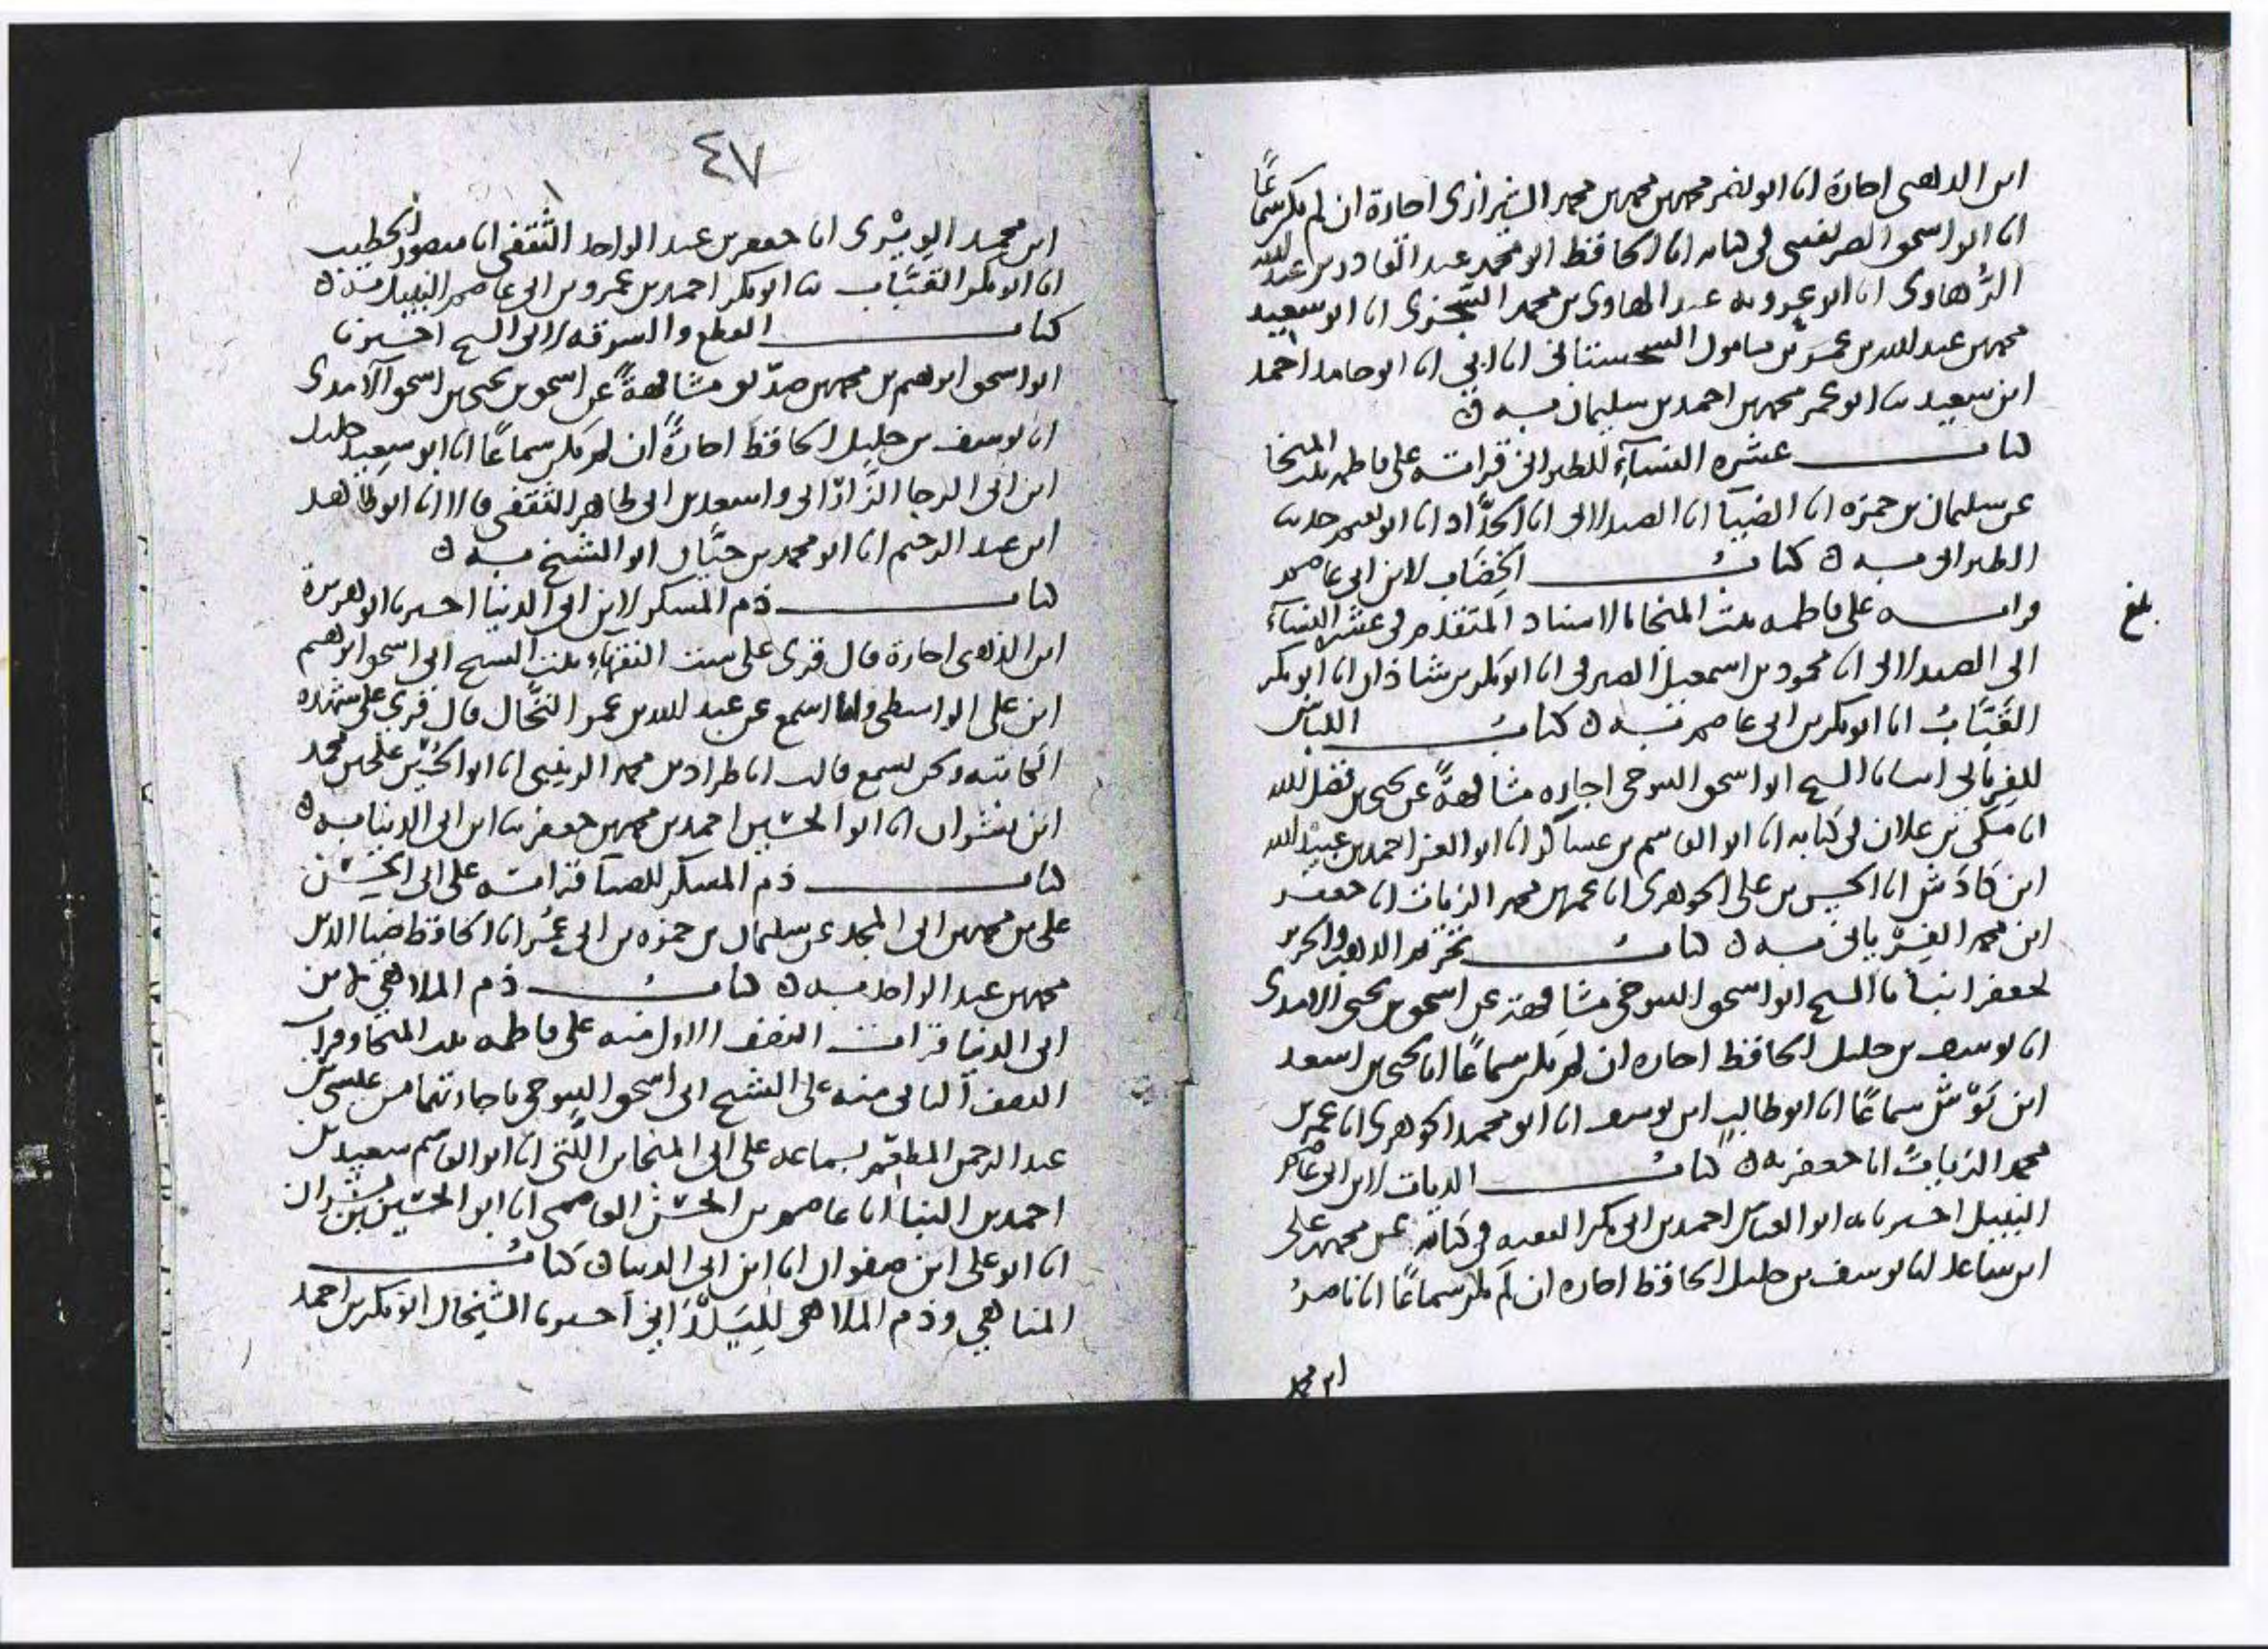 ابن الذهبى اجازة انا ابو نصر محمد بن محمد بن محمد الشيرازى اجازة ان لم يكن سماعًا
انا ابو اسحق الصريفينى فى كتابه انا الحافظ ابو محمد عبد القادر بن عبد الله
الرُّهاوى انا ابو عروبه عبد الهادى بن محمد السّجزى انا ابو سعيد
محمد بن عبد الله بن عمر بن مامون السجستانى انا ابى انا ابو حامد احمد
ابن سعيد ثنا ابو عمر محمد بن احمد بن سليمان به ه
كتاب عشره النسآء للطبرانى قراته على فاطمه بنت المنجا
عن سليمان بن حمزه انا الضيآ انا الصيدلانى انا الحدَّاد انا ابو نعيم حدثنا
الطبرانى به ه كتابُ الخِضَاب لابن ابى عاصم
قراته على فاطمه بنت المنجا بالاسناد المتقدم فى عشره النسآء
الى الصيدلانى انا محمود بن اسمعيل الصيرفى انا ابو بكر بن شاذان انا ابو بكر
القَبَّابُ انا ابو بكر بن ابى عاصم به ه كتابُ اللباس
للفريابى انبانا الشيخ ابو اسحق التنوخى اجازه مشافهةً عن يحيى بن فضل الله
انا مكى بن علان فى كتابه انا ابو القاسم بن عساكر انا ابو العز احمد بن عبيد الله
ابن كادَش انا الحسن بن على الجوهرى انا عمر بن محمد الزيات انا جعفر
ابن محمد الفِرْيابى به ه كتابُ تحريم الذهب والحرير
لجعفر انبانا الشيخ ابو اسحق التنوخى مشافهة عن اسحق بن يحيى الامدى
انا يوسف بن خليل الحافظ اجازه ان لم يكن سماعًا انا يحيى بن اسعد
ابن بَوْش سماعًا انا ابو طالب ابن يوسف انا ابو محمد الجوهرى انا عمر بن
محمد الزيات انا جعفر به ه كتابُ الديات لابن ابى عاصم
النبيل اخبرنا به ابو العباس احمد بن ابى بكر الفقيه فى كتابه عن محمد بن على
ابن ساعد انا يوسف بن خليل الحافظ اجازه ان لم يكن سماعًا انا ناصرُ
ابن محمد
بلغ
٤٧
ابن محمد الوِيْرِى انا جعفر بن عبد الواحد الثقفى انا منصور الخطيب
انا ابو بكر القبَّاب ثنا ابو بكر احمد بن عمرو بن ابى عاصم النبيل به ه
كتاب القطع والسرقه لابى الشيخ اخبرنا
ابو اسحق ابرهيم بن محمد بن صدّيق مشافهةً عن اسحق بن يحيى بن اسحق الآمدى
انا يوسف بن خليل الحافظ اجازةً ان لم يكن سماعًا انا ابو سعيد خليل
ابن ابى الرجا الرَّارانى واسعد بن ابى طاهر الثقفى قالا انا ابو طاهر
ابن عبد الرحيم انا ابو محمد بن حيَّان ابو الشيخ به ه
كتاب ذم المسكر لابن ابى الدنيا اخبرنا ابو هريرة
ابن الذهبى اجازة قال قرى على ست الفقهاء بنت الشيخ ابى اسحق ابرهيم
ابن على الواسطى وانا اسمع عن عبد الله بن عمر النخَّال قال قرى على شهده
الكاتبه ونحن نسمع قالت انا طراد بن محمد الزينبى انا ابو الحسين على بن محمد
ابن بشران انا ابو الحسين احمد بن محمد بن جعفر ثنا ابن ابى الدنيا به ه
كتاب ذم المسكر للضيآ قراته على ابى الحسن
على بن محمد بن ابى المجد عن سليمان بن حمزه بن ابى عُمر انا الحافظ ضيا الدين
محمد بن عبد الواحد به ه كتابُ ذم الملاهى لابن
ابى الدنيا قرات النصف الاول منه على فاطمه بنت المنجا وقرات
النصف الثانى منه على الشيخ ابى اسحق التنوخى باجازتهما من عيسى بن
عبد الرحمن المطعّم بسماعه على ابى المنجا بن اللّتى انا ابو القاسم سعيد بن
احمد بن البنا انا عاصم بن الحسن العاصمى انا ابو الحسين بن بشران
انا ابو على ابن صفوان انا ابن ابى الدنيا ه كتابُ
المناهى وذم الملاهى للِيَلْدَانى اخبرنا الشيخان ابو بكر بن احمد